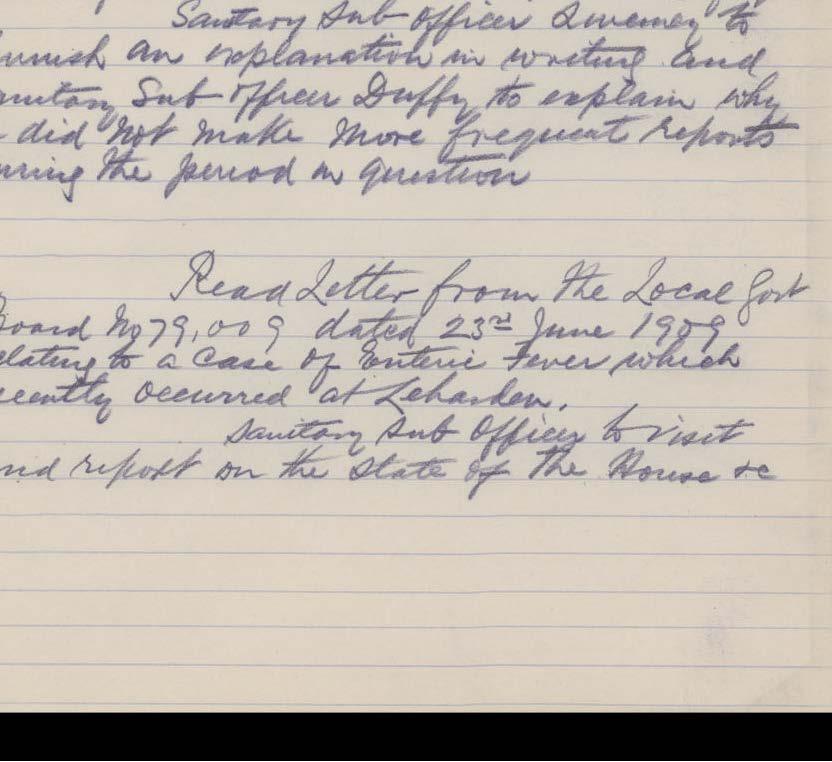 Sanitary Sub Officer Sweeney to
urnish an explanation in writing and
anitary Sub Officer Duffy to explain why
did not make more frequent reports
uring the period in question
Read Letter from the Local Govt
Board No 79,009 dated 23rd June 1909
elating to a case of Enteric Fever which
ecently occurred at
Sanitary Sub Officer to visit
nd report on the State of the House &c